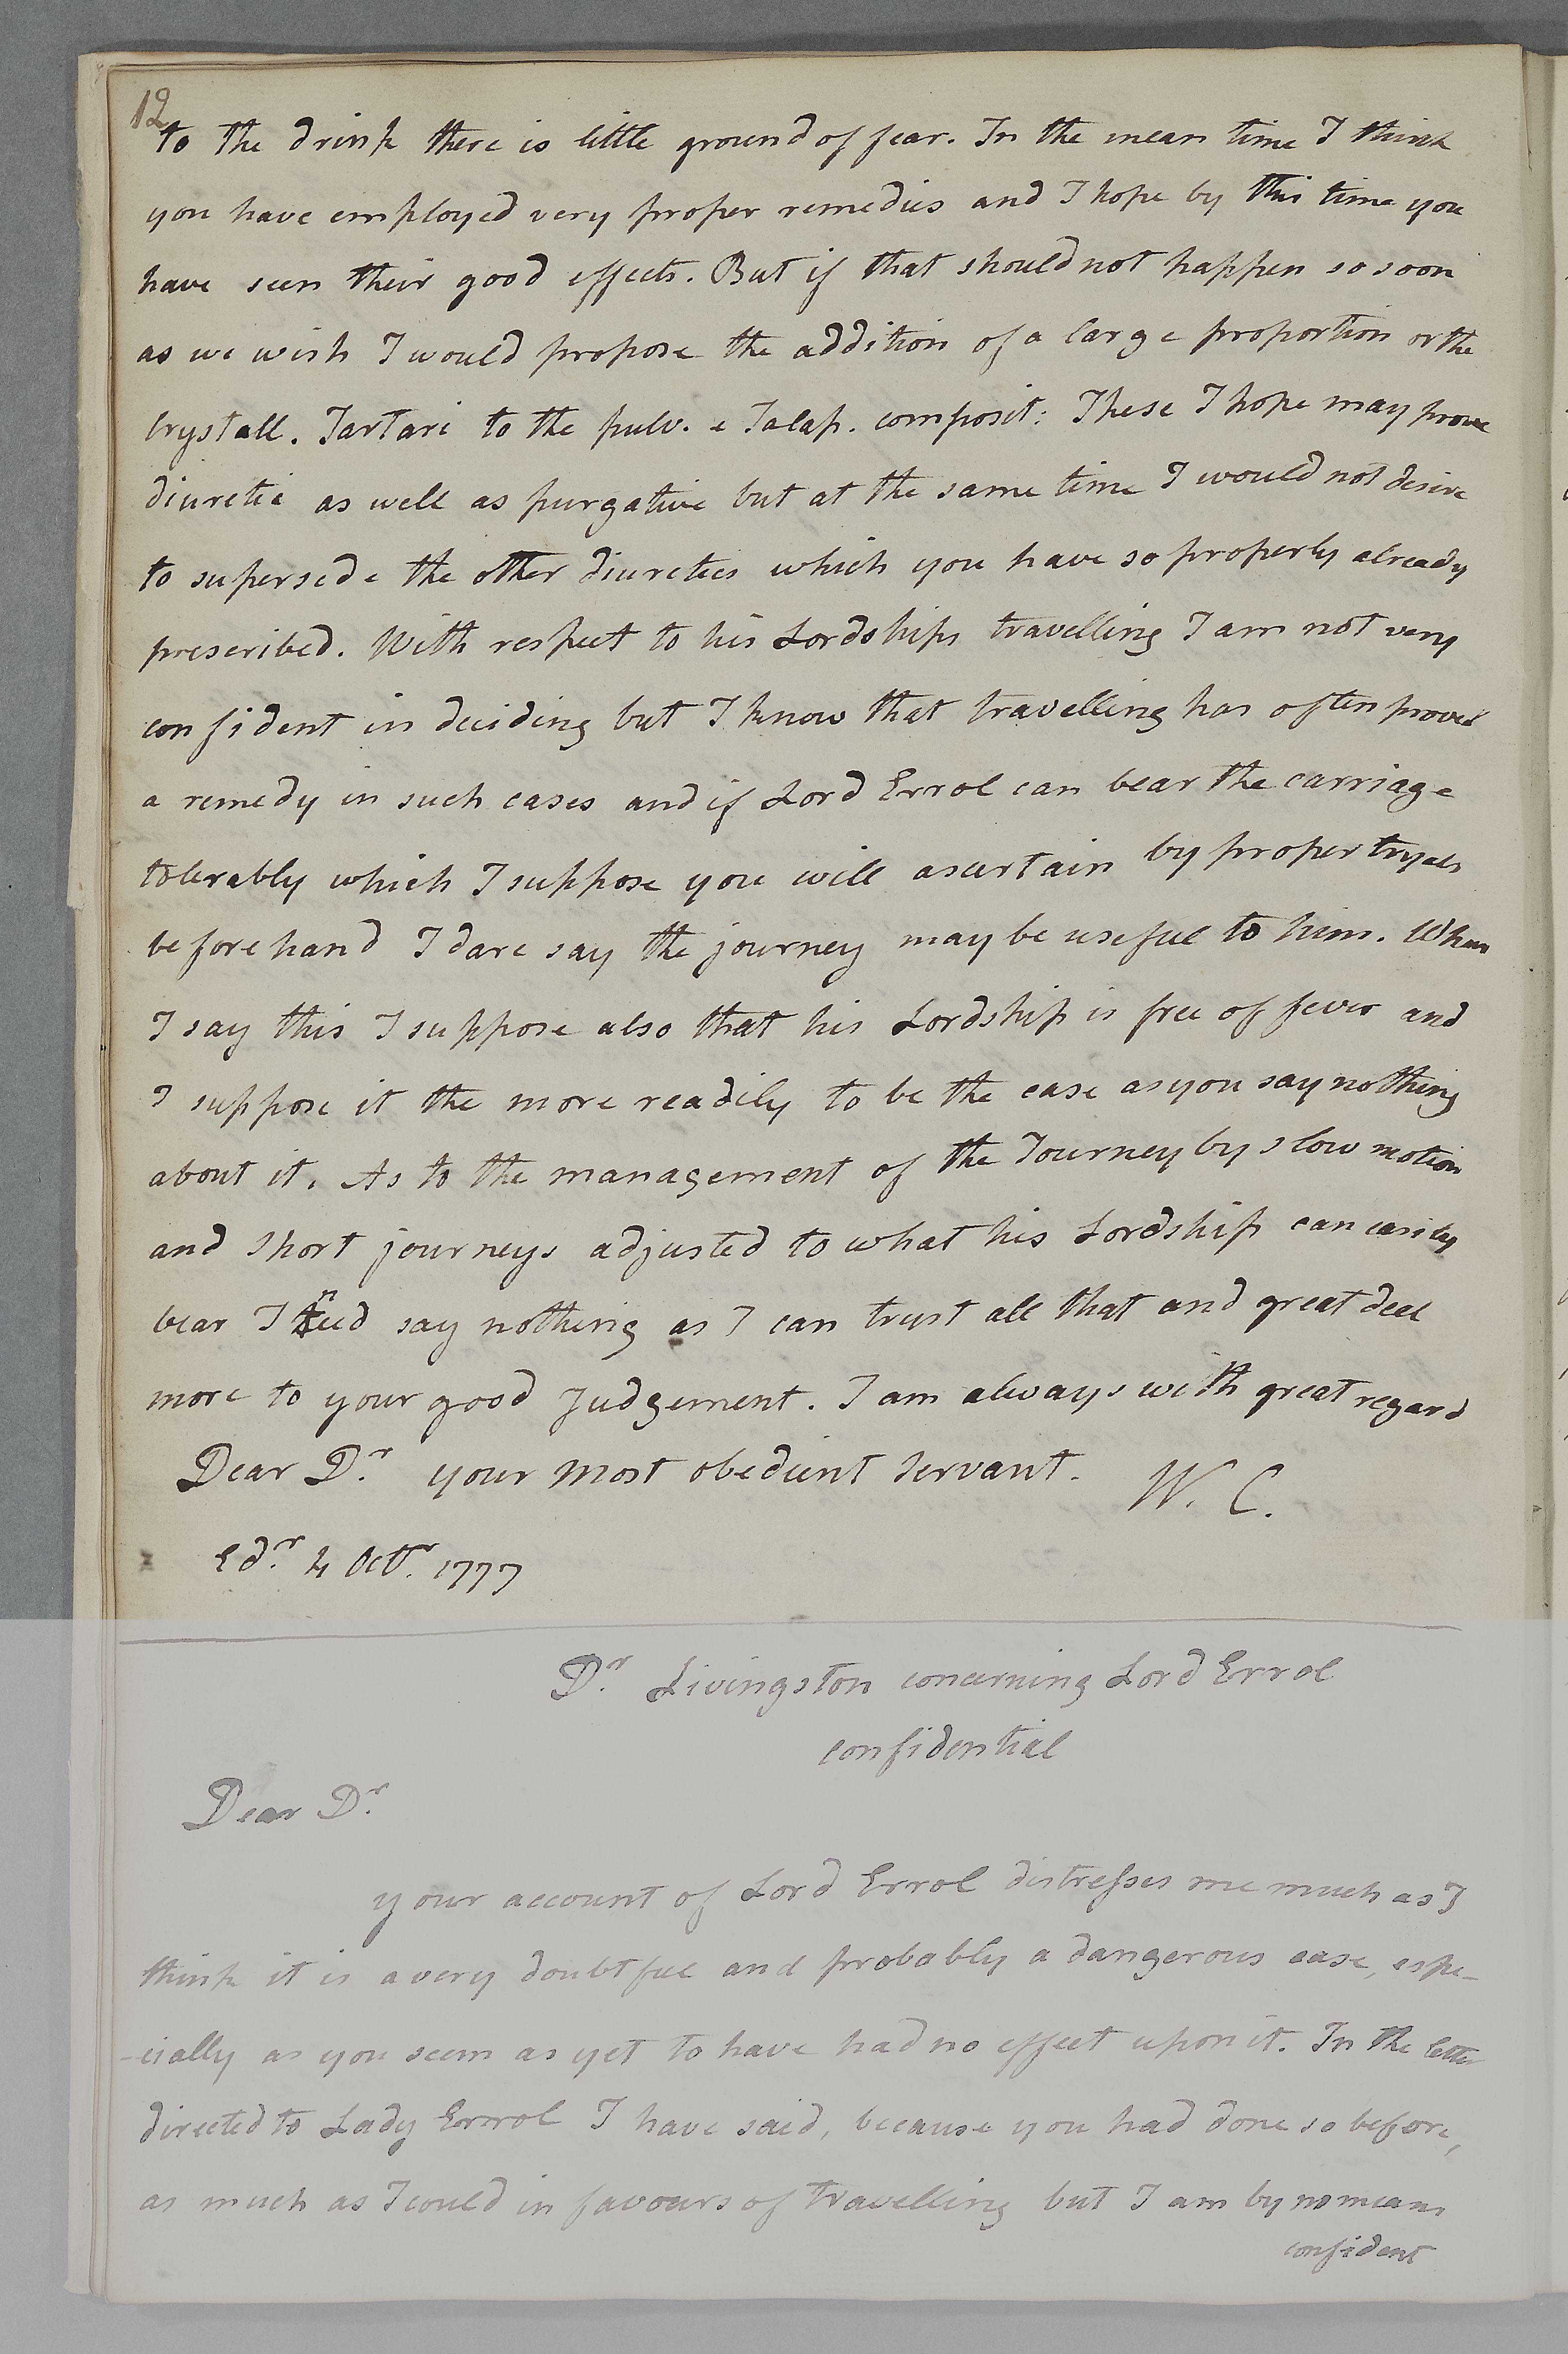 12
to the drink there is little ground of fear. In the mean time I think
you have employed very proper remedies and I hope by this time you
have seen their good effects. But if that should not happen so soon
as we wish I would propose the addition of a large proportion or the
Crystall. Tartari to the pulv. e Jalap. composit: These I hope may prove
diuretic as well as purgative but at the same time I would not desire
to supersede the other diuretics which you have so properly already
prescribed. With respect to his Lordships travelling I am not very
confident in deciding but I know that travelling has often proved
a remedy in such cases and if Lord Errol can bear the carriage
tolerably which I suppose you will ascertain by proper tryals
beforehand I dare say the journey may be useful to him. When
I say this I suppose also that his Lordship is free of fever and
I suppose it the more readily to be the case as you say nothing
about it. As to the management of the Journey by slow motion
and short journeys adjusted to what his Lordship can easily
bear I need say nothing as I can trust all that and great deal
more to your good Judgement. I am always with great regard
Dear Dr. your most obedient servant. W. C.
Edr. 4 Octr. 1777
Dr. Livingston concerning Lord Errol
confidential
Dear Dr.
your account of Lord Errol distresses me much as I
think it is a very doubtful and probably a dangerous case, espe-
-cially as you seem as yet to have had no effect upon it. In the letter
directed to Lady Errol I have said, because you had done so before,
as much as I could in favours of travelling but I am by no means
confident